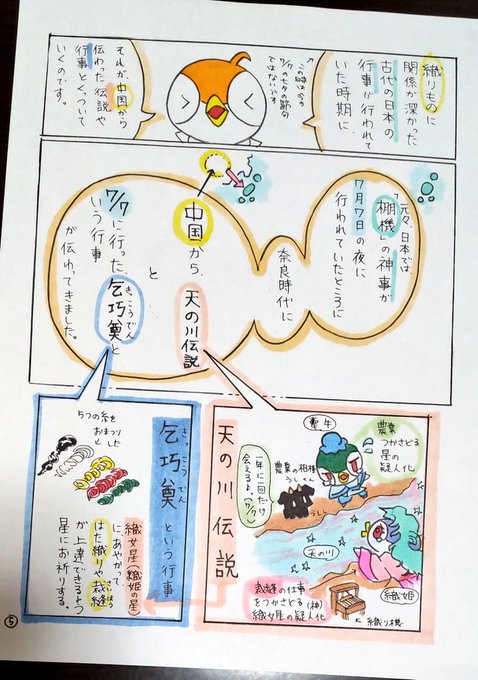 織りものに
関係が深かった
古代の日本の
行事が行われて
いた時期に、
↑この時は今の
7/7の七夕の節句
ではないです
それが、中国から
伝わった伝説や
行事とくっついて
いくのです。
元々、日本では、
「棚機」の神事が
7月7日の夜に
行われていたところに
奈良時代に
中国から、
天の川伝説
と
7/7に行った、乞巧奠と
きっこうでん
いう行事
が伝わってきました。
天の川伝説
農業
つかさどる
星の
疑人化
牽牛
農業の相棒
うしくん
うしと
一年に一回だけ
会えるよ(7/7)
天の川
織姫
裁縫の仕事
をつかさどる(神)
織女星の疑人化
織り機
乞巧奠という行事
きっこうでん
5つの糸を
おまつり
した
織女星(織姫の星)
にあやかって
はた織りや裁縫
さいほう
が上達できるよう
星にお祈りする。
⑤